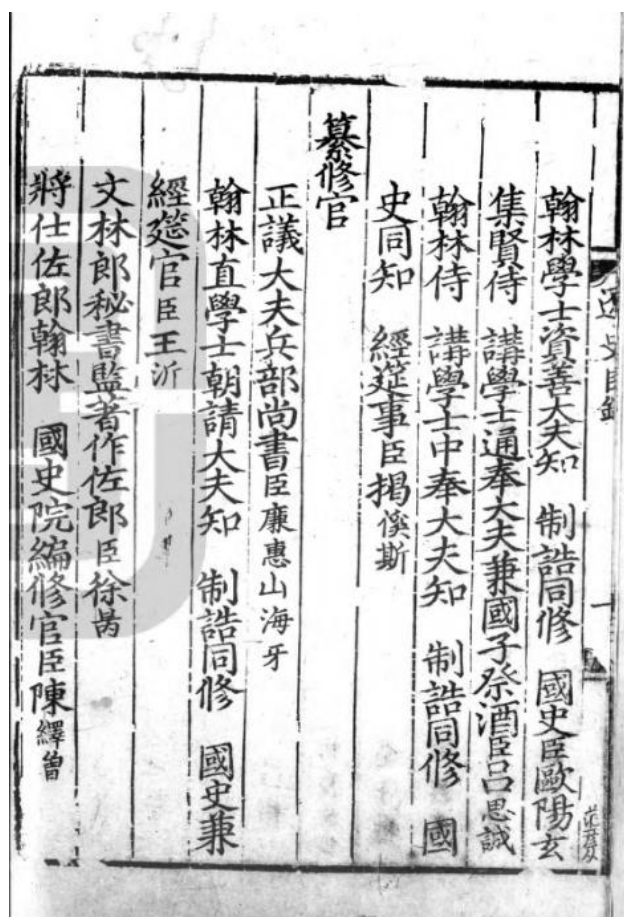 遼史目錄
十
翰林學士資善大夫知　制誥同修　國史臣歐陽玄
集賢侍　講學士通奉大夫兼國子祭酒臣呂思誠
翰林侍　講學士中奉大夫知　制誥同修　國
史同知　經筵事臣揭傒斯
纂修官
正議大夫兵部尚書臣廉惠山海牙
翰林直學士朝請大夫知　制誥同修　國史兼
經筵官臣王沂
文林郎秘書監著作佐郎臣徐昺
將仕佐郎翰林　國史院編修官臣陳繹曾